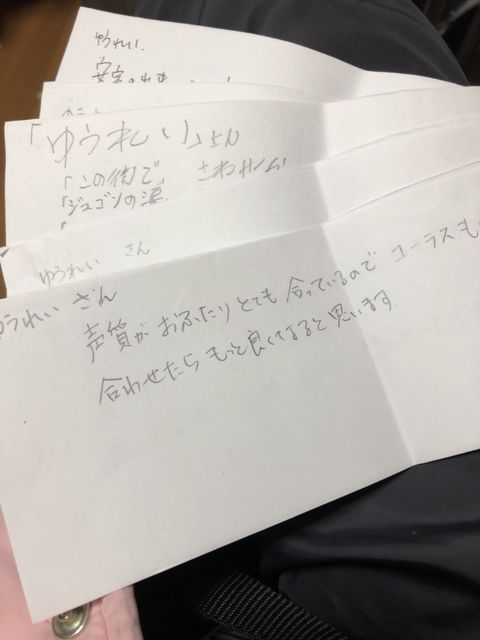 ゆうれい.
「ゆうれい」さん
「この街で」
「ジュゴンの涙
ゆうれい さん
うれい さん
声質が おふたり とても 合っているので コーラスも
合わせたら もっと良くなると 思います.